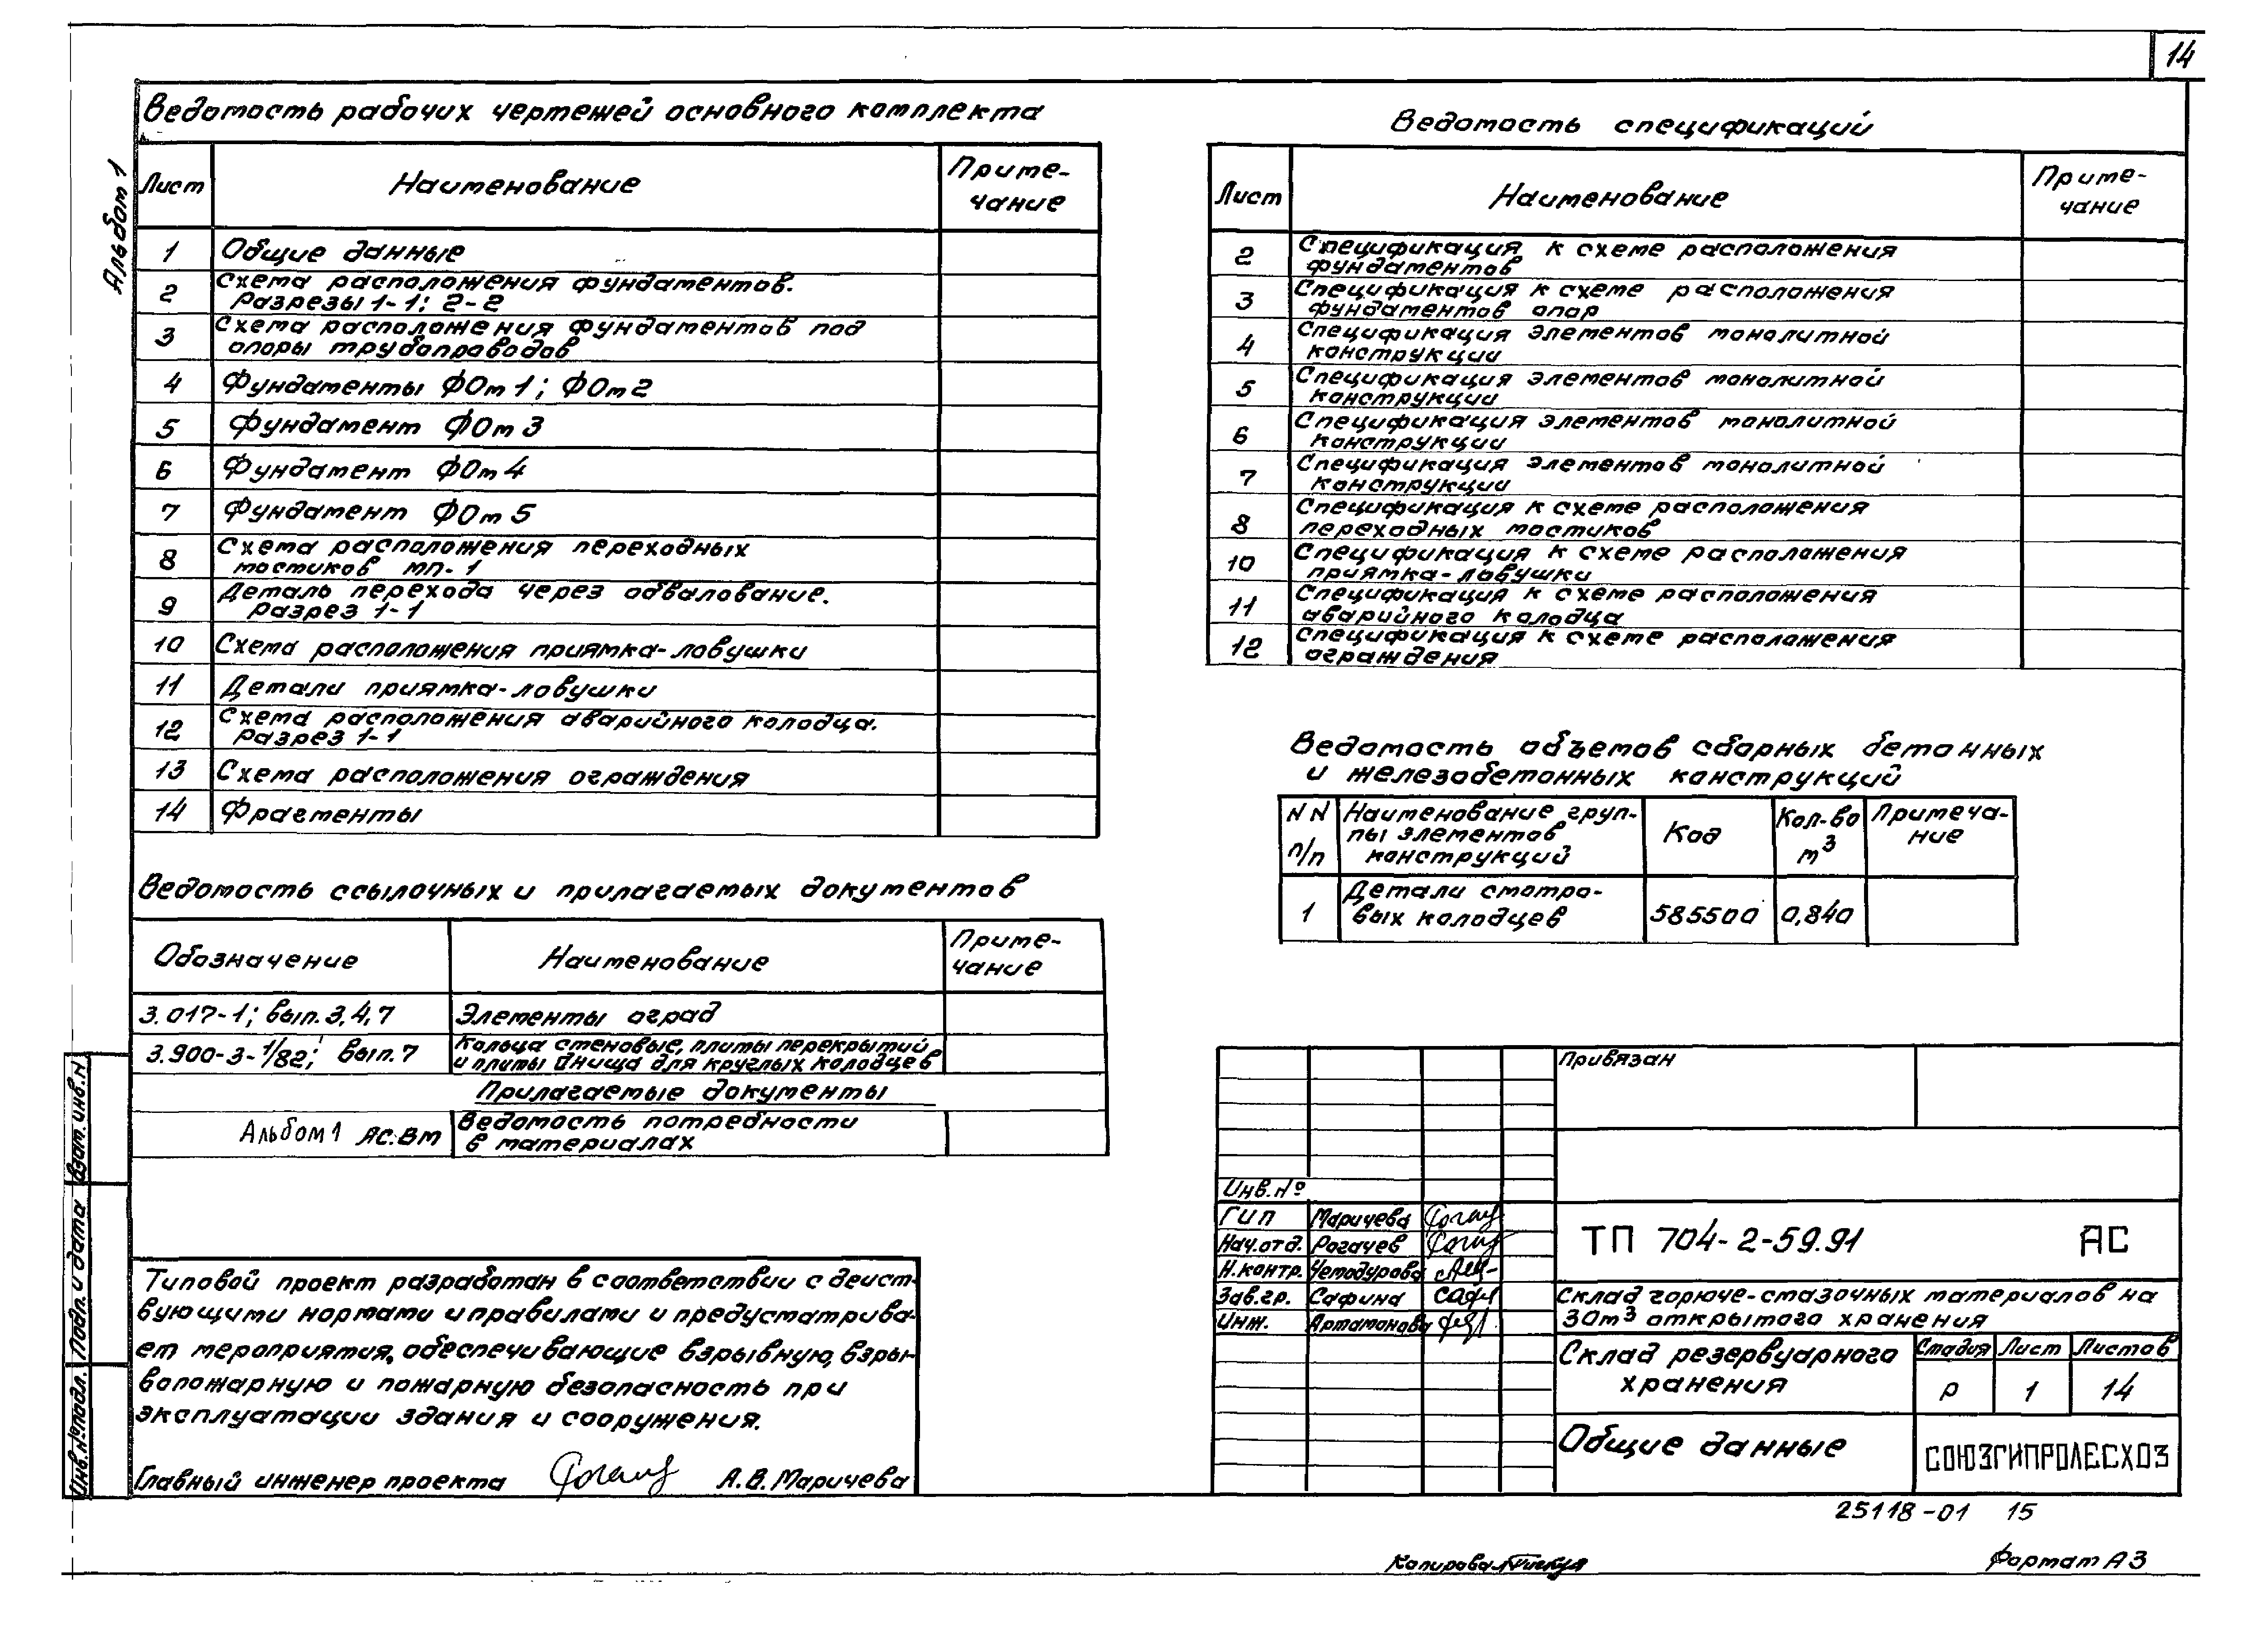 14
Альбом 1
Ведомость рабочих чертежей основного комплекта
Лист Наименование Приме-
чание
1 Общие данные
2 Схема расположения фундаментов.
Разрезы 1-1; 2-2
3 Схема расположения фундаментов под
опоры трубопроводов
4 Фундаменты ФОм1; ФОм2
5 Фундамент ФОм3
6 Фундамент ФОм4
7 Фундамент ФОм5
8 Схема расположения переходных
мостиков МП-1
9 Деталь перехода через обвалование.
Разрез 1-1
10 Схема расположения приямка-ловушки
11 Детали приямка-ловушки
12 Схема расположения аварийного колодца.
Разрез 1-1
13 Схема расположения ограждения
14 Фрагменты
Ведомость ссылочных и прилагаемых документов
Обозначение Наименование Приме-
чание
3.017-1; вып. 3,4,7 Элементы оград
3.900-3-1/82; вып. 7 Кольца стеновые, плиты перекрытий
и плиты днища для круглых колодцев
Прилагаемые документы
Альбом 1 АС.ВМ Ведомость потребности
в материалах
Типовой проект разработан в соответствии с дейст-
вующими нормами и правилами и предусматрива-
ет мероприятия, обеспечивающие взрывную, взры-
вопожарную и пожарную безопасность при
эксплуатации здания и сооружения.
Главный инженер проекта А.В. Маричева
Взам. инв. N
Подп. и дата
Инв. № подл.
Ведомость спецификаций
Лист Наименование Приме-
чание
2 Спецификация к схеме расположения
фундаментов
3 Спецификация к схеме расположения
фундаментов опор
4 Спецификация элементов монолитной
конструкции
5 Спецификация элементов монолитной
конструкции
6 Спецификация элементов монолитной
конструкции
7 Спецификация элементов монолитной
конструкции
8 Спецификация к схеме расположения
переходных мостиков
10 Спецификация к схеме расположения
приямка-ловушки
11 Спецификация к схеме расположения
аварийного колодца
12 Спецификация к схеме расположения
ограждения
Ведомость объемов сборных бетонных
и железобетонных конструкций
NN п/п Наименование груп-
пы элементов
конструкций Код Кол-во м³ Примеча-
ние
1 Детали смотро-
вых колодцев 585500 0,840
Привязан
Инв. №
ГИП Маричева
Нач.отд. Рогачев
Н.контр. Чемодурова
Зав.гр. Сафина
Инж. Артамонова
ТП 704-2-59.91 АС
Склад горюче-смазочных материалов на
30м³ открытого хранения
Склад резервуарного
хранения
Стадия Лист Листов
Р 1 14
Общие данные
СОЮЗГИПРОЛЕСХОЗ
25118-01 15
Копировал
Формат А3